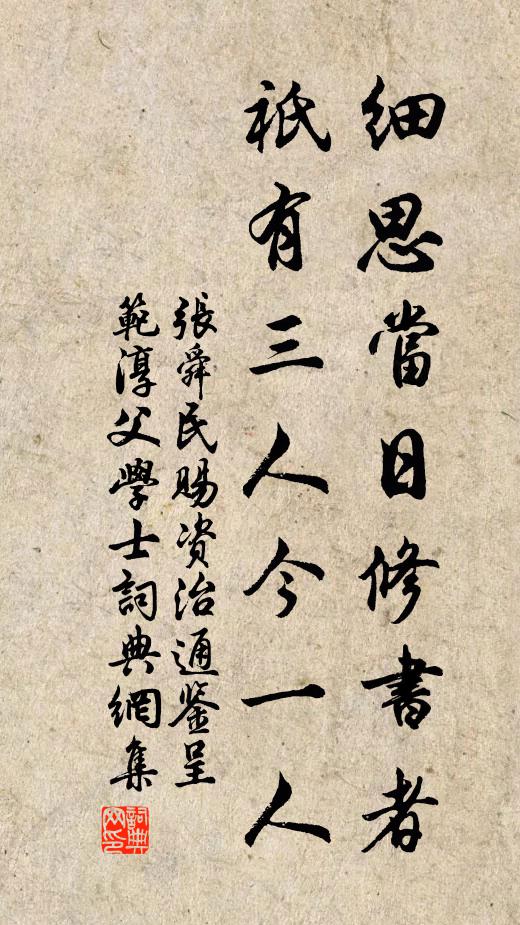 細思當日修書者
祇有三人今一人
張舜民賜资治通鉴呈
範淳父學士詞典網集
詞典网印